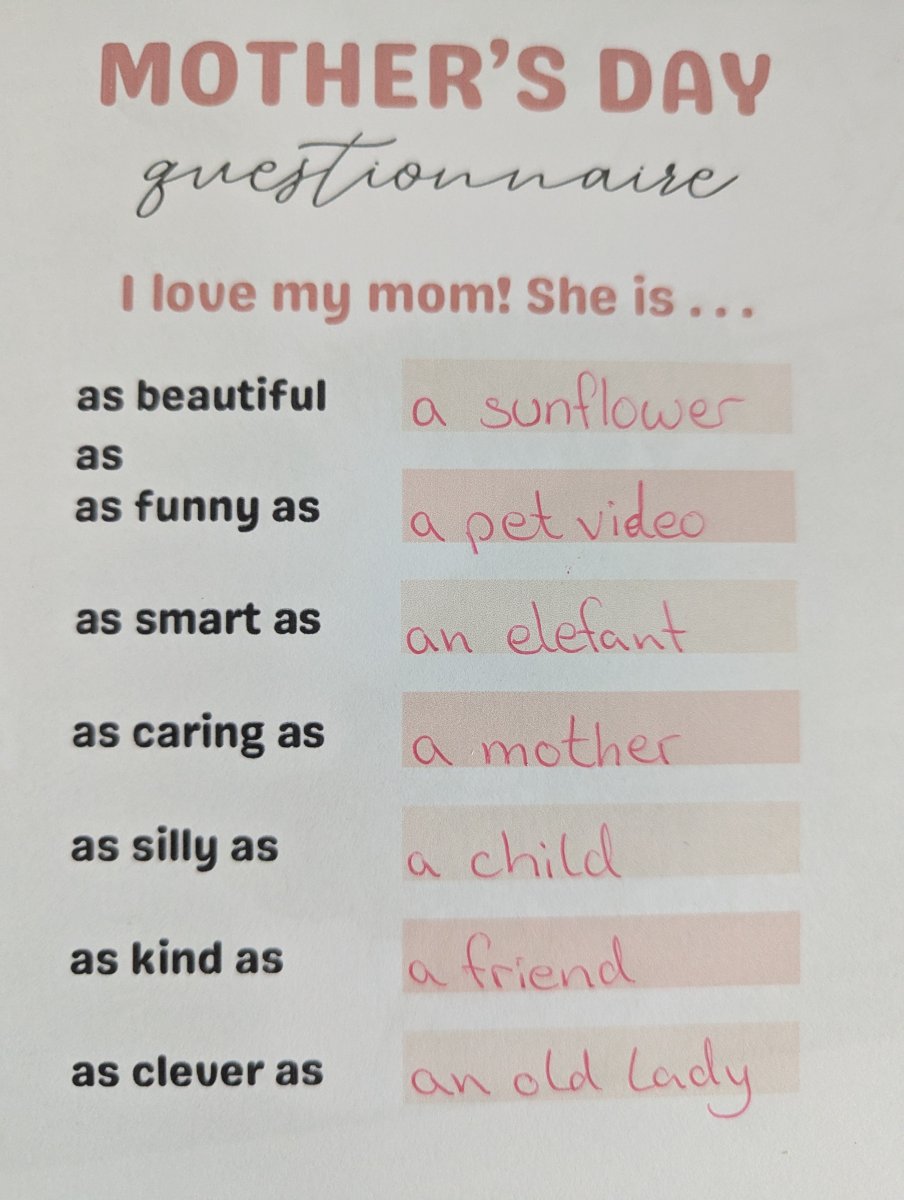 MOTHER'S DAY
questionnaire
I love my mom! She is . . .
as beautiful a sunflower
as
as funny as a pet video
as smart as an elefant
as caring as a mother
as silly as a child
as kind as a friend
as clever as an old lady